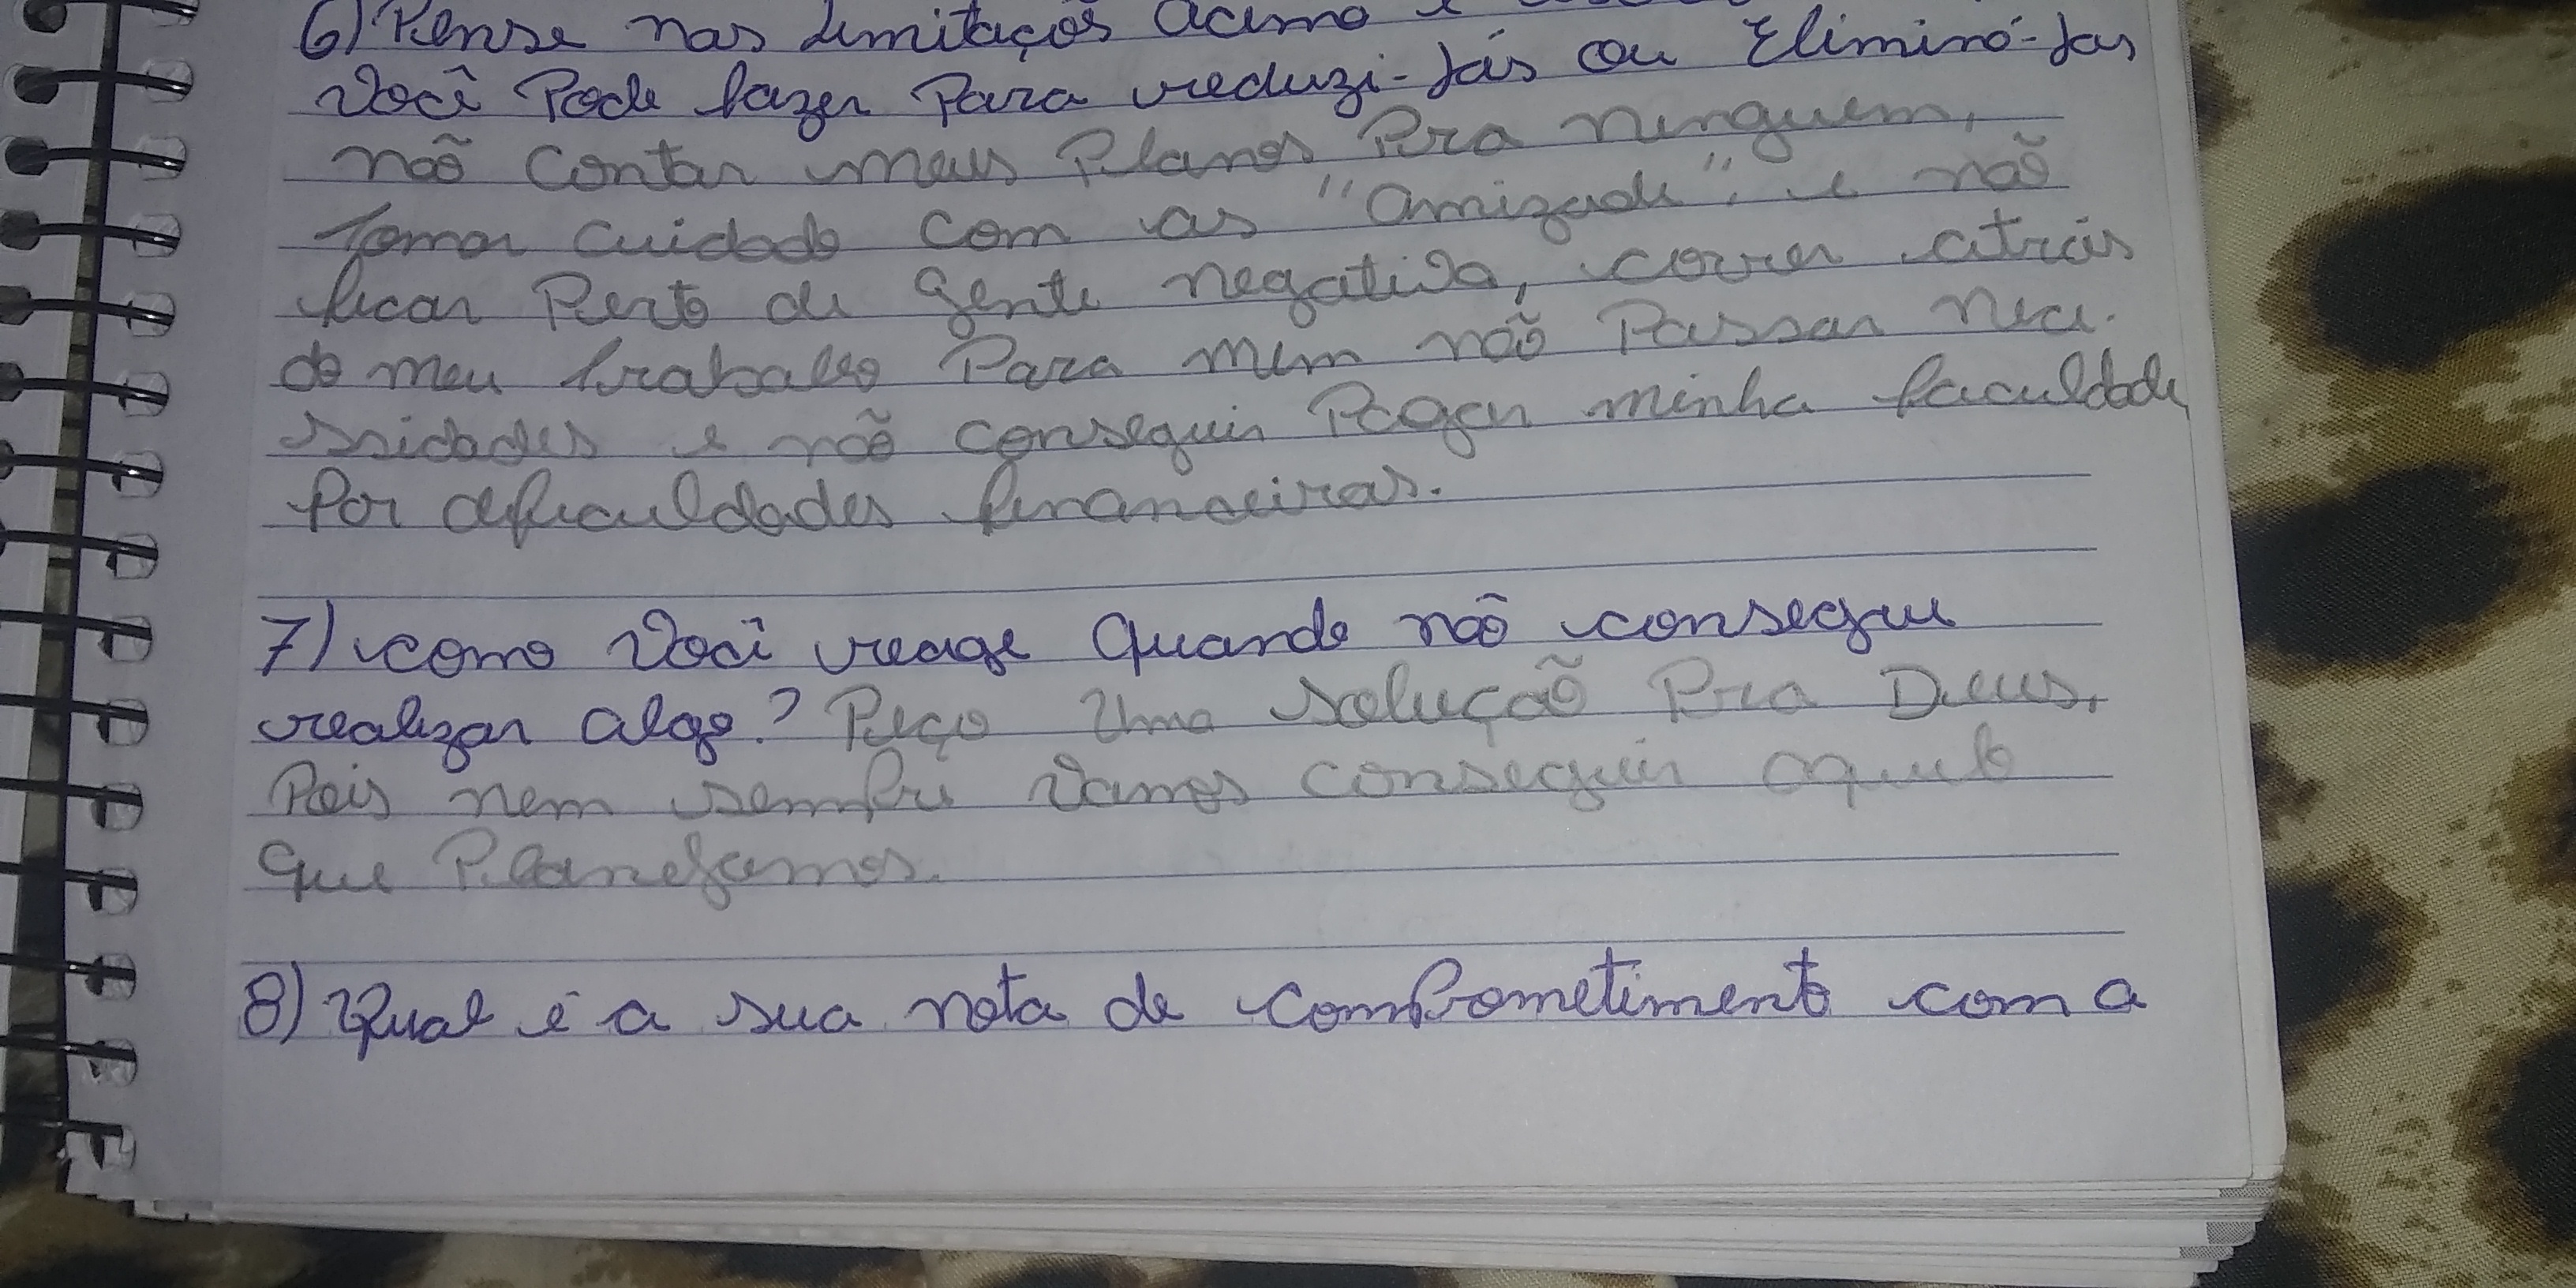 6) Pense nas limitaçõs acima e
Você Pode fazer Para reduzi-lás ou Eliminá-las
não contar meus Planos Pra ninguem,
Tomar cuidado com as "amizade". e não
ficar Perto de gente negativa, correr atrás
do meu trabalho Para mim não Passar nece-
ssidades e não conseguir Pagar minha faculdade
Por dificuldades financeiras.
7) como Você reage quando não consegue
realizar algo? Peço uma solução Pra Deus,
Pois nem sempre vamos conseguir aquilo
que Planejamos.
8) Qual é a sua nota de comprometimento com a